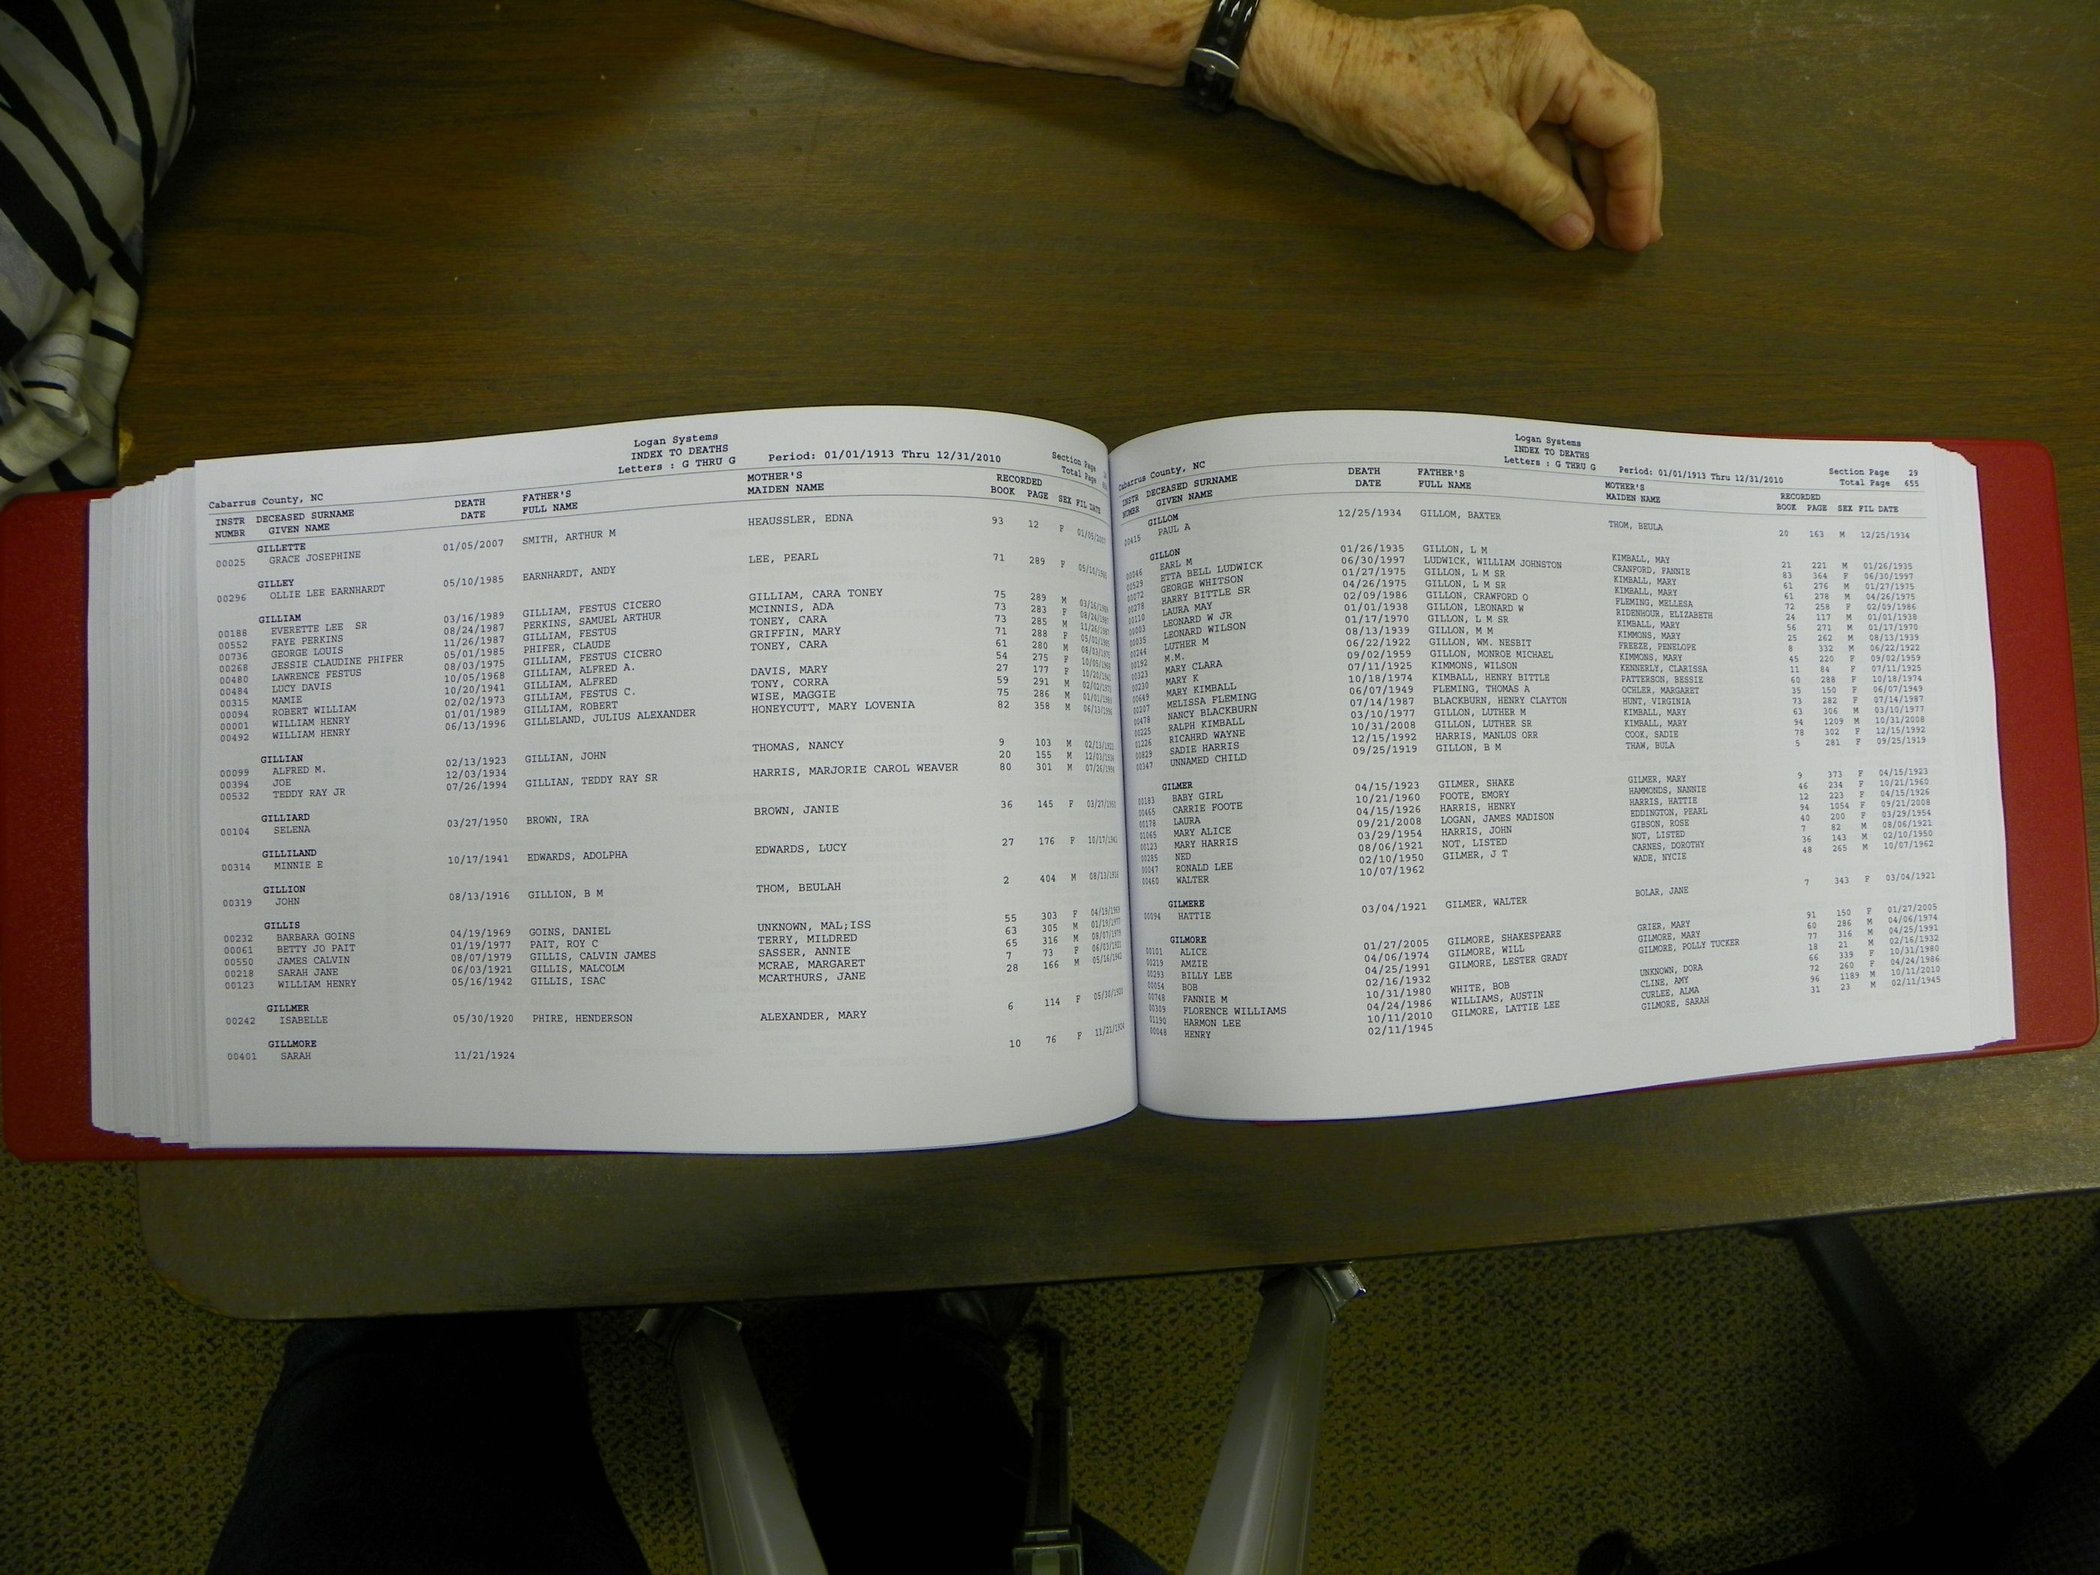 Logan Systems
INDEX TO DEATHS
Letters : G THRU G Period: 01/01/1913 Thru 12/31/2010
Section Page
Total Page
Cabarrus County, NC
INSTR DECEASED SURNAME DEATH FATHER'S MOTHER'S RECORDED
NUMBR GIVEN NAME DATE FULL NAME MAIDEN NAME BOOK PAGE SEX FIL DATE
GILLETTE
00025 GRACE JOSEPHINE 01/05/2007 SMITH, ARTHUR M HEAUSSLER, EDNA 93 12 F 01/05/2007
GILLEY
00296 OLLIE LEE EARNHARDT 05/10/1985 EARNHARDT, ANDY LEE, PEARL 71 289 F 05/10/1985
GILLIAM
00188 EVERETTE LEE SR 03/16/1989 GILLIAM, FESTUS CICERO GILLIAM, CARA TONEY 75 289 M 03/16/1989
00552 FAYE PERKINS 08/24/1987 PERKINS, SAMUEL ARTHUR MCINNIS, ADA 73 283 F 08/24/1987
00736 GEORGE LOUIS 11/26/1987 GILLIAM, FESTUS TONEY, CARA 73 285 M 11/26/1987
00268 JESSIE CLAUDINE PHIFER 05/01/1985 PHIFER, CLAUDE GRIFFIN, MARY 71 288 F 05/01/1985
00480 LAWRENCE FESTUS 08/03/1975 GILLIAM, FESTUS CICERO TONEY, CARA 61 280 M 08/03/1975
00484 LUCY DAVIS 10/05/1968 GILLIAM, ALFRED A. 54 275 F 10/05/1968
00315 MAMIE 10/20/1941 GILLIAM, ALFRED DAVIS, MARY 27 177 F 10/20/1941
00094 ROBERT WILLIAM 02/02/1973 GILLIAM, FESTUS C. TONY, CORRA 59 291 M 02/02/1973
00001 WILLIAM HENRY 01/01/1989 GILLIAM, ROBERT WISE, MAGGIE 75 286 M 01/01/1989
00492 WILLIAM HENRY 06/13/1996 GILLELAND, JULIUS ALEXANDER HONEYCUTT, MARY LOVENIA 82 358 M 06/13/1996
GILLIAN
00099 ALFRED M. 02/13/1923 GILLIAN, JOHN THOMAS, NANCY 9 103 M 02/13/1923
00394 JOE 12/03/1934 20 155 M 12/03/1934
00532 TEDDY RAY JR 07/26/1994 GILLIAN, TEDDY RAY SR HARRIS, MARJORIE CAROL WEAVER 80 301 M 07/26/1994
GILLIARD
00104 SELENA 03/27/1950 BROWN, IRA BROWN, JANIE 36 145 F 03/27/1950
GILLILAND
00314 MINNIE E 10/17/1941 EDWARDS, ADOLPHA EDWARDS, LUCY 27 176 F 10/17/1941
GILLION
00319 JOHN 08/13/1916 GILLION, B M THOM, BEULAH 2 404 M 08/13/1916
GILLIS
00232 BARBARA GOINS 04/19/1969 GOINS, DANIEL UNKNOWN, MAL;ISS 55 303 F 04/19/1969
00061 BETTY JO PAIT 01/19/1977 PAIT, ROY C TERRY, MILDRED 63 305 M 01/19/1977
00550 JAMES CALVIN 08/07/1979 GILLIS, CALVIN JAMES SASSER, ANNIE 65 316 M 08/07/1979
00218 SARAH JANE 06/03/1921 GILLIS, MALCOLM MCRAE, MARGARET 7 73 F 06/03/1921
00123 WILLIAM HENRY 05/16/1942 GILLIS, ISAC MCARTHURS, JANE 28 166 M 05/16/1942
GILLMER
00242 ISABELLE 05/30/1920 PHIRE, HENDERSON ALEXANDER, MARY 6 114 F 05/30/1920
GILLMORE
00401 SARAH 11/21/1924 10 76 F 11/21/1924
Logan Systems
INDEX TO DEATHS
Letters : G THRU G Period: 01/01/1913 Thru 12/31/2010
Section Page 29
Total Page 655
Cabarrus County, NC
INSTR DECEASED SURNAME DEATH FATHER'S MOTHER'S RECORDED
NUMBR GIVEN NAME DATE FULL NAME MAIDEN NAME BOOK PAGE SEX FIL DATE
GILLOM
00415 PAUL A 12/25/1934 GILLOM, BAXTER THOM, BEULA 20 163 M 12/25/1934
GILLON
00046 EARL M 01/26/1935 GILLON, L M KIMBALL, MAY 21 221 M 01/26/1935
00529 ETTA BELL LUDWICK 06/30/1997 LUDWICK, WILLIAM JOHNSTON CRANFORD, FANNIE 83 364 F 06/30/1997
00072 GEORGE WHITSON 01/27/1975 GILLON, L M SR KIMBALL, MARY 61 276 M 01/27/1975
00278 HARRY BITTLE SR 04/26/1975 GILLON, L M SR KIMBALL, MARY 61 278 M 04/26/1975
00110 LAURA MAY 02/09/1986 GILLON, CRAWFORD O FLEMING, MELLESA 72 258 F 02/09/1986
00003 LEONARD W JR 01/01/1938 GILLON, LEONARD W RIDENHOUR, ELIZABETH 24 117 M 01/01/1938
00035 LEONARD WILSON 01/17/1970 GILLON, L M SR KIMBALL, MARY 56 271 M 01/17/1970
00244 LUTHER M 08/13/1939 GILLON, M M KIMMONS, MARY 25 262 M 08/13/1939
00192 M.M. 06/22/1922 GILLON, WM. NESBIT FREEZE, PENELOPE 8 332 M 06/22/1922
00323 MARY CLARA 09/02/1959 GILLON, MONROE MICHAEL KIMMONS, MARY 45 220 F 09/02/1959
00230 MARY K 07/11/1925 KIMMONS, WILSON KENNERLY, CLARISSA 11 84 F 07/11/1925
00649 MARY KIMBALL 10/18/1974 KIMBALL, HENRY BITTLE PATTERSON, BESSIE 60 288 F 10/18/1974
00207 MELISSA FLEMING 06/07/1949 FLEMING, THOMAS A OCHLER, MARGARET 35 150 F 06/07/1949
00478 NANCY BLACKBURN 07/14/1987 BLACKBURN, HENRY CLAYTON HUNT, VIRGINIA 73 282 F 07/14/1987
00225 RALPH KIMBALL 03/10/1977 GILLON, LUTHER M KIMBALL, MARY 63 306 M 03/10/1977
01226 RICAHRD WAYNE 10/31/2008 GILLON, LUTHER SR KIMBALL, MARY 94 1209 M 10/31/2008
00829 SADIE HARRIS 12/15/1992 HARRIS, MANLUS ORR COOK, SADIE 78 302 F 12/15/1992
00347 UNNAMED CHILD 09/25/1919 GILLON, B M THAW, BULA 5 281 F 09/25/1919
GILMER
00183 BABY GIRL 04/15/1923 GILMER, SHAKE GILMER, MARY 9 373 F 04/15/1923
00465 CARRIE FOOTE 10/21/1960 FOOTE, EMORY HAMMONDS, NANNIE 46 234 F 10/21/1960
00178 LAURA 04/15/1926 HARRIS, HENRY HARRIS, HATTIE 12 223 F 04/15/1926
01065 MARY ALICE 09/21/2008 LOGAN, JAMES MADISON EDDINGTON, PEARL 94 1054 F 09/21/2008
00123 MARY HARRIS 03/29/1954 HARRIS, JOHN GIBSON, ROSE 40 200 F 03/29/1954
00285 NED 08/06/1921 NOT, LISTED NOT, LISTED 7 82 M 08/06/1921
00047 RONALD LEE 02/10/1950 GILMER, J T CARNES, DOROTHY 36 143 M 02/10/1950
00460 WALTER 10/07/1962 WADE, NYCIE 48 265 M 10/07/1962
GILMERE
00094 HATTIE 03/04/1921 GILMER, WALTER BOLAR, JANE 7 343 F 03/04/1921
GILMORE
00101 ALICE 01/27/2005 GILMORE, SHAKESPEARE GRIER, MARY 91 150 F 01/27/2005
00219 AMZIE 04/06/1974 GILMORE, WILL GILMORE, MARY 60 286 M 04/06/1974
00293 BILLY LEE 04/25/1991 GILMORE, LESTER GRADY GILMORE, POLLY TUCKER 77 316 M 04/25/1991
00054 BOB 02/16/1932 18 21 M 02/16/1932
00748 FANNIE M 10/31/1980 WHITE, BOB UNKNOWN, DORA 66 339 F 10/31/1980
00309 FLORENCE WILLIAMS 04/24/1986 WILLIAMS, AUSTIN CLINE, AMY 72 260 F 04/24/1986
01190 HARMON LEE 10/11/2010 GILMORE, LATTIE LEE CURLEE, ALMA 96 1189 M 10/11/2010
00048 HENRY 02/11/1945 GILMORE, SARAH 31 23 M 02/11/1945